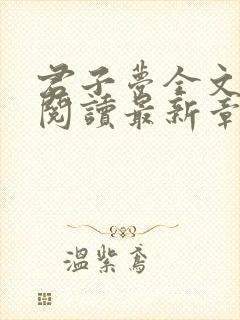 君子夢全文
閱讀最新章
溫紫鳶